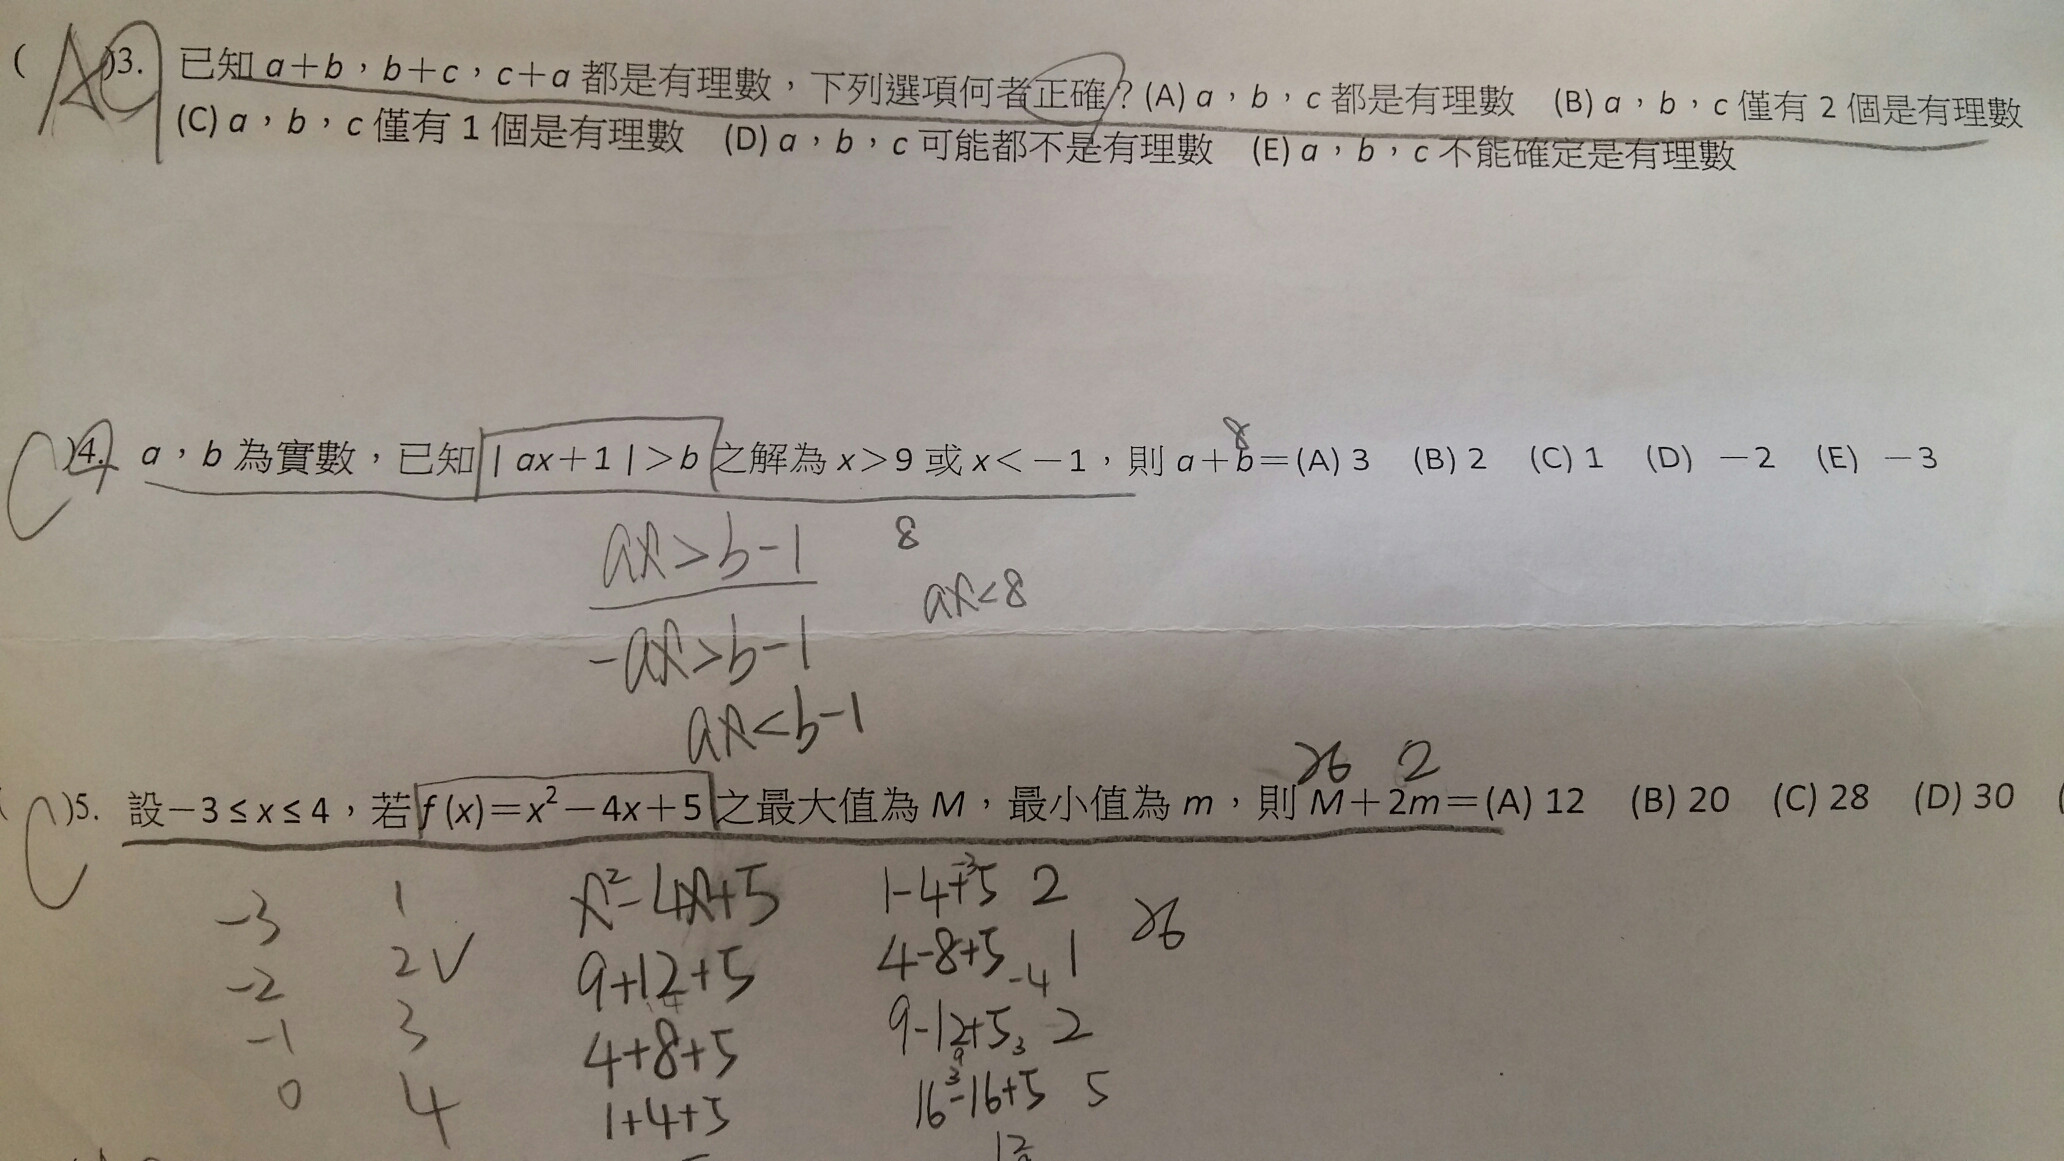 ( AC )3. 已知 a+b，b+c，c+a 都是有理數，下列選項何者正確？(A) a，b，c 都是有理數 (B) a，b，c 僅有 2 個是有理數
(C) a，b，c 僅有 1 個是有理數 (D) a，b，c 可能都不是有理數 (E) a，b，c 不能確定是有理數
8
C )4. a，b 為實數，已知 | ax+1 |>b 之解為 x>9 或 x<-1，則 a+b=(A) 3 (B) 2 (C) 1 (D) -2 (E) -3
ax>b-1 8
ax<8
-ax>b-1
ax<b-1
26 2
( C )5. 設-3≤x≤4，若 f (x)=x²-4x+5 之最大值為 M，最小值為 m，則 M+2m=(A) 12 (B) 20 (C) 28 (D) 30 (
-3 1 x²-4x+5 1-4+5 2 26
-2 2✓ 9+12+5 4-8+5 -4 1
-1 3 4+8+5 9-12+5 3 2
0 4 1+4+5 16-16+5 5